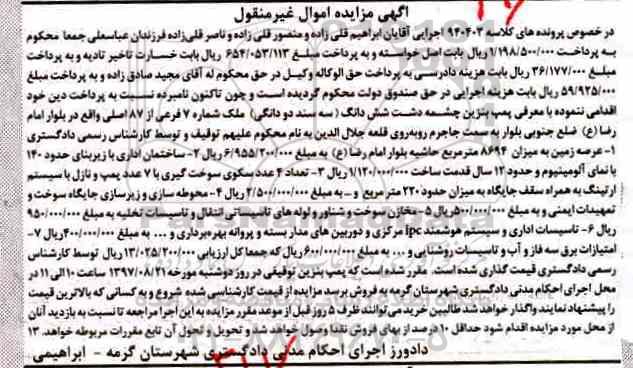 آگهی مزایده اموال غیرمنقول
در خصوص پرونده های کلاسه ۹۴۰۴۰۳ اجرایی آقایان ابراهیم قلی زاده و منصور قلی زاده و ناصر قلی‌زاده فرزندان عباسعلی جمعا محکوم
به پرداخت ۱/۱۹۸/۵۰۰/۰۰۰ ریال بابت اصل خواسته و به پرداخت مبلغ ۶۵۴/۰۵۳/۱۱۳ ریال بابت خسارت تاخیر تادیه و به پرداخت
مبلغ ۳۶/۱۷۷/۰۰۰ ریال بابت هزینه دادرسی به پرداخت حق الوکاله وکیل در حق محکوم له آقای مجید صادق زاده و به پرداخت مبلغ
۵۹/۹۲۵/۰۰۰ ریال بابت هزینه اجرایی در حق صندوق دولت محکوم گردیده است و چون تاکنون نامبرده نسبت به پرداخت دین خود
اقدامی ننموده با معرفی پمپ بنزین چشمه دشت شش دانگ (سه سند دو دانگی) ملک شماره ۷ فرعی از ۸۷ اصلی واقع در بلوار امام
رضا (ع) ضلع جنوبی بلوار به سمت جاجرم روبه‌روی قلعه جلال الدین به نام محکوم علیهم توقیف و توسط کارشناس رسمی دادگستری
۱- عرصه زمین به میزان ۸۶۹۴ مترمربع حاشیه بلوار امام رضا (ع) به مبلغ ۶/۹۵۵/۲۰۰/۰۰۰ ریال ۲- ساختمان اداری با زیربنای حدود ۱۴۰
با نمای آلومینیوم و حدود ۱۲ سال قدمت ساخت ۱/۱۲۰/۰۰۰/۰۰۰ ریال ۳- تعداد ۴ عدد سکوی سوخت گیری با ۷ عدد پمپ و نازل با سیستم
ارتینگ به همراه سقف جایگاه به میزان حدود ۲۲۰ متر مربع و ... به مبلغ ۲/۵۰۰/۰۰۰/۰۰۰ ریال ۴- محوطه سازی و زیرسازی جایگاه سوخت و
تمهیدات ایمنی و به مبلغ ۵۰۰/۰۰۰/۰۰۰ ریال ۵- مخازن سوخت و شناور و لوله های تاسیساتی انتقال و تاسیسات تخلیه به مبلغ ۹۵۰/۰۰۰/۰۰۰
ریال ۶- تاسیسات اداری و سیستم هوشمند ipc مرکزی و دوربین های مدار بسته و پروانه بهره‌برداری و ... به مبلغ ۴۰۰/۰۰۰/۰۰۰ ریال ۷-
امتیازات برق سه فاز و آب و تاسیسات روشنایی و ... به مبلغ ۶۰۰/۰۰۰/۰۰۰ ریال که جمعا کل ارزیابی ۱۳/۰۲۵/۲۰۰/۰۰۰ ریال توسط کارشناس
رسمی دادگستری قیمت گذاری شده است. مقرر شده است که پمپ بنزین توقیفی در روز دوشنبه مورخه ۱۳۹۷/۰۸/۲۱ ساعت ۱۰ الی ۱۱ در
محل اجرای احکام مدنی دادگستری شهرستان گرمه به فروش برسد مزایده از قیمت کارشناسی شده شروع و به کسانی که بالاترین قیمت
را پیشنهاد نمایند واگذار خواهد شد طالبین خرید می‌توانند ظرف ۵ روز قبل از موعد مقرر مزایده به این اجرا مراجعه تا نسبت به بازدید آنان
از محل مورد مزایده اقدام شود حداقل ۱۰ درصد از بهای فروش نقدا وصول خواهد شد و تحویل و تحول آن تابع مقررات مربوطه خواهد. ۱۳
دادورز اجرای احکام مدنی دادگستری شهرستان گرمه - ابراهیمی